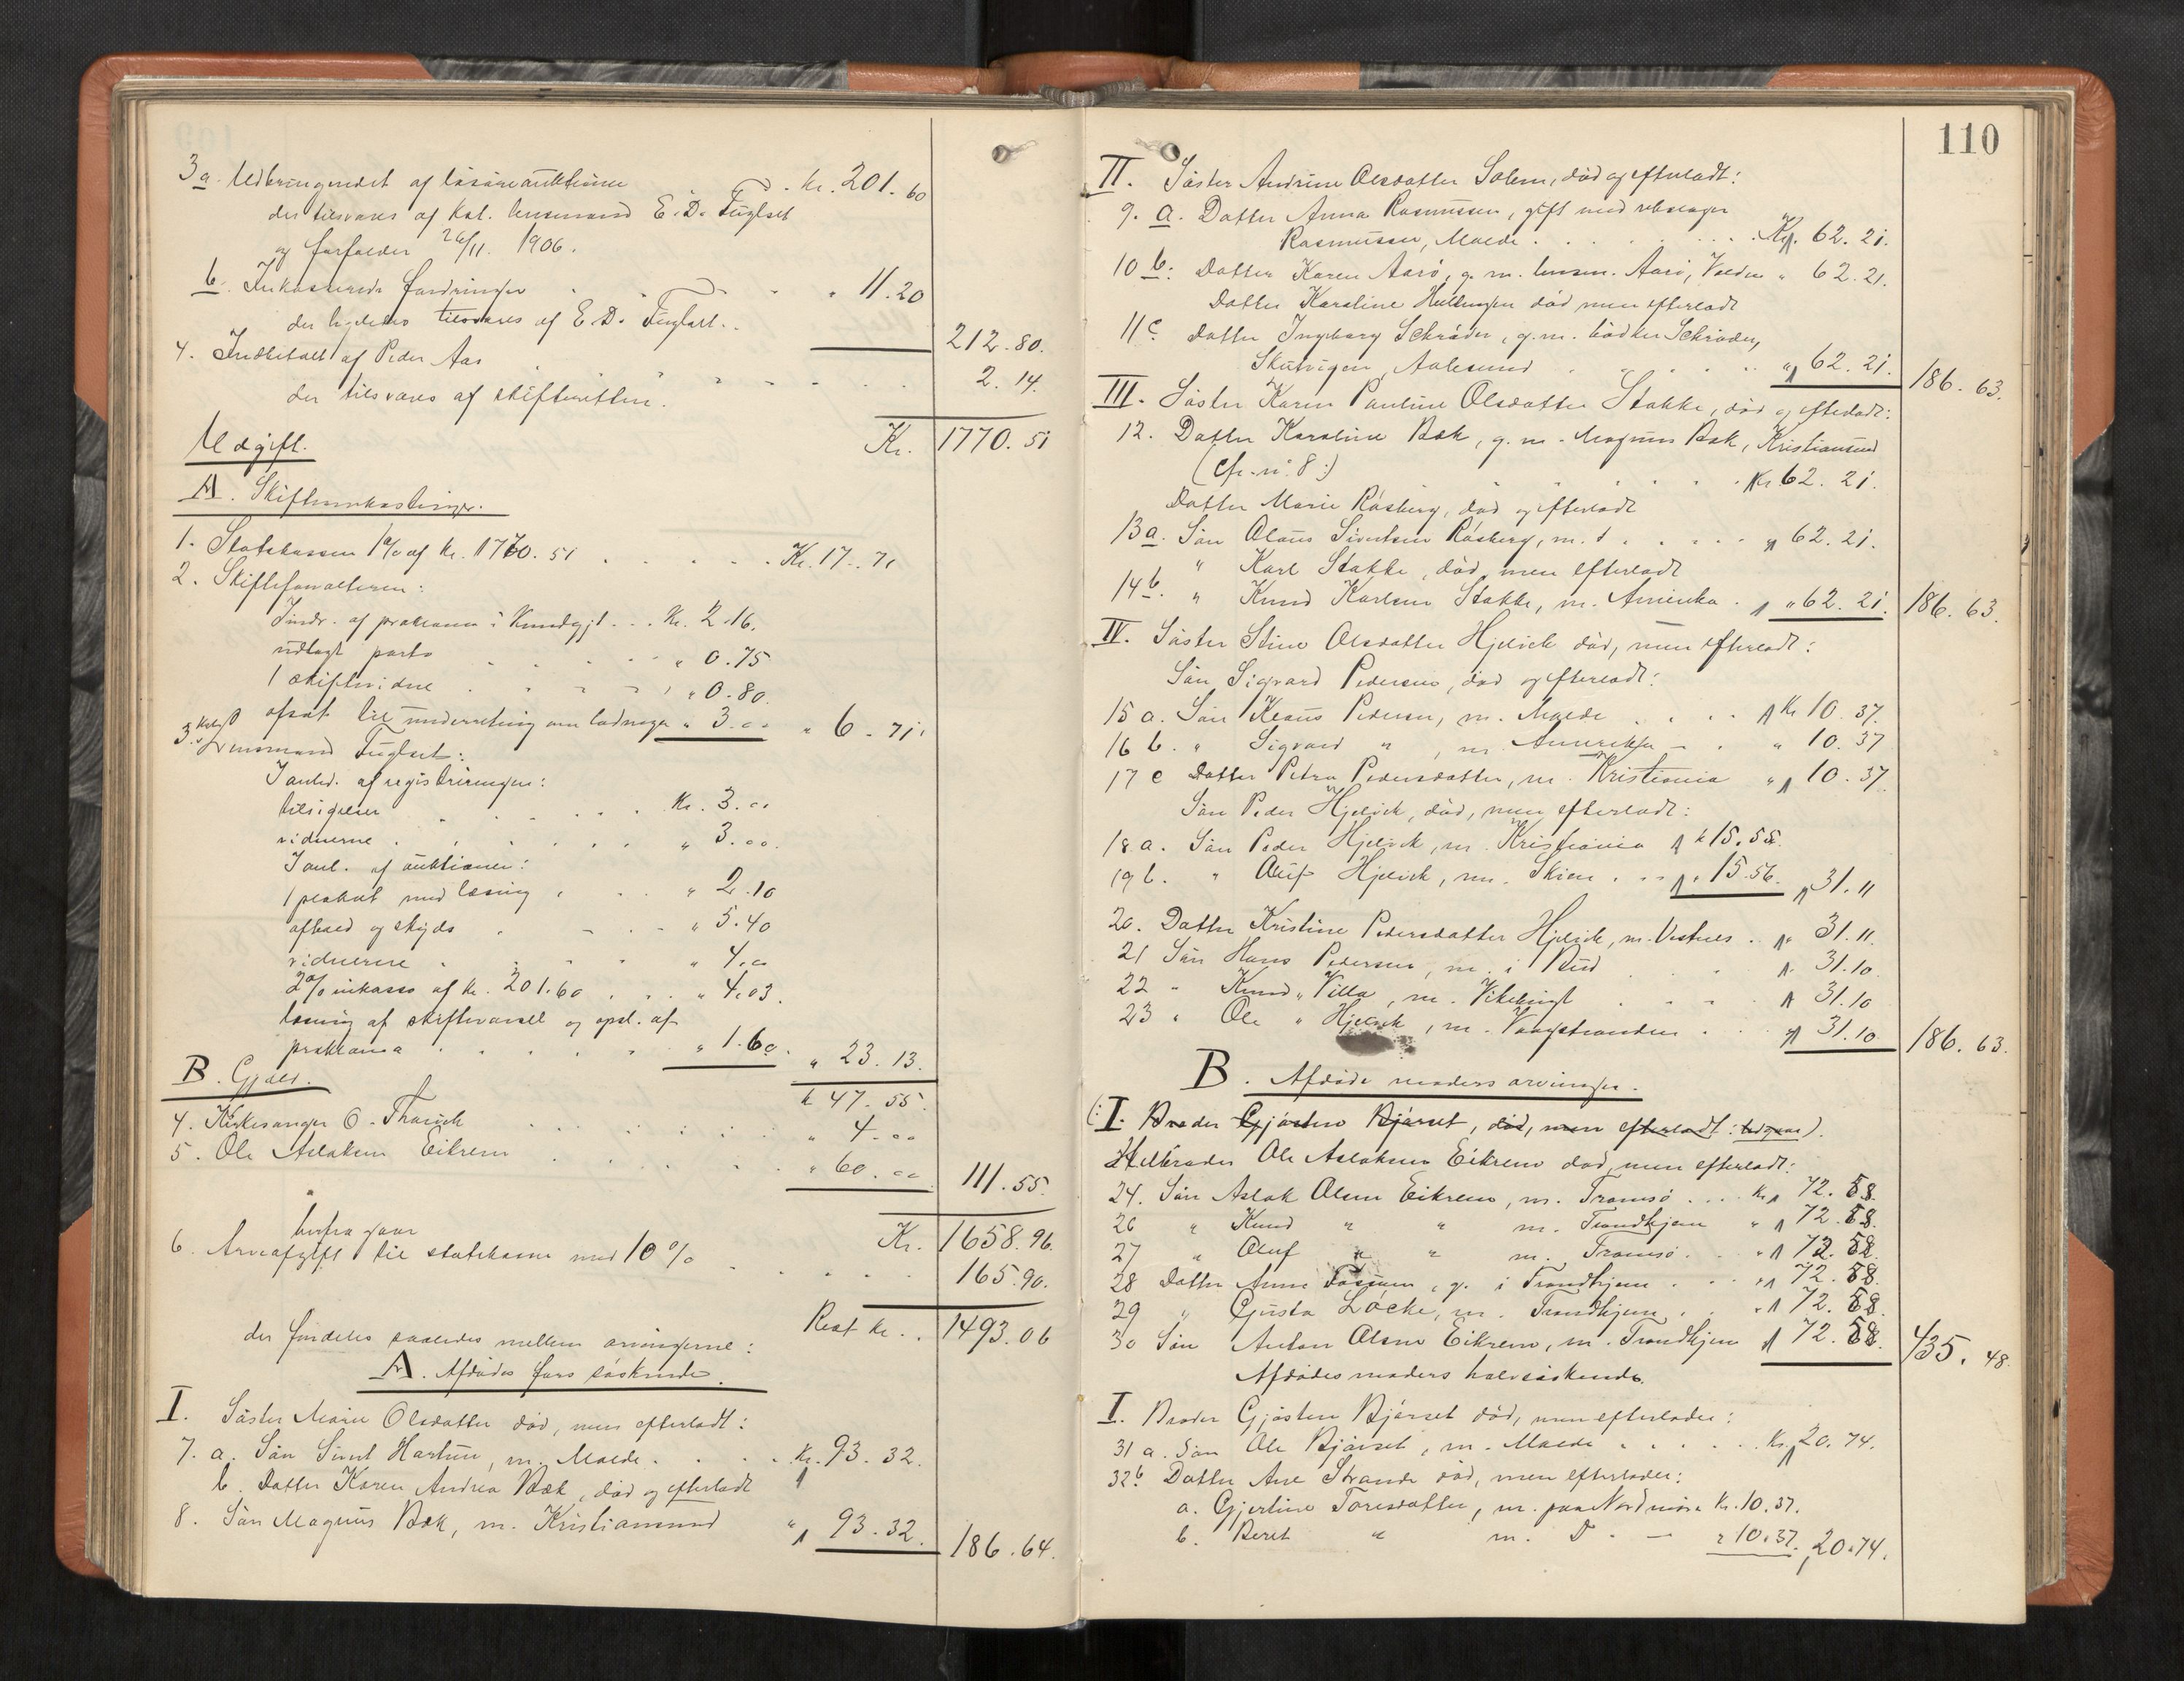 3 a. Udbringendet af løsøreauktionen . kr. 201.60
der tilsvares af Kst. lensmand E. D. Fuglset
og forfalder 26/11 1906.
b. Inkasserede fordringer " 11.20
der ligeledes tilsvares af E. D. Fuglset.. 212.80.
4. Indbetalt af Peder Aas 2.14.
der tilsvares af skifteretten.
Kr. 1770.51
Udgift.
A. Skifteomkostninger.
1. Statskassen 1% af kr. 1770.51 . . . . Kr. 17.71
2. Skifteforvalteren:
Indr. af proklama i Kundgjt. . . Kr. 2.16.
udlagt porto " 0.75
1 skiftevidne " 0.80.
opsat til underretning om lodninger " 3.00 " 6.71
3. Kst. Lensmand Fuglset:
I anled. af registreringen:
tilsigelser Kr. 3.00
vidnerne " 3.00.
I anl. af auktionen:
1 plakat med læsning " 2.10
afhold og skyds " 5.40
vidnerne " 4.00
2% inkasso af kr. 201.60 . . . " 4.03.
læsning af skiftevarsel og opsl. af
proklama " 1.60. " 23.13.
k 47.55.
B. Gjæld.
4. Kirkesanger O. Tharvik " 4.00
5. Ole Aslaksen Eikrem " 60.00. 111.55.
Kr. 1658.96.
herfra gaar
6. Arveafgift til statskassen med 10% 165.90.
Rest kr. . 1493.06
der fordeles saaledes mellem arvingerne:
A. Afdødes fars søskende.
I. Søster Marie Olsdatter død, men efterladt:
7. a. Søn Sivert Hartun, m. Molde . . . . Kr. 93.32.
b. Datter Karen Andrea Bæk, død og efterladt
8. Søn Magnus Bæk, m. Kristiansund " 93.32. 186.64.
110
II. Søster Andrine Olsdatter Solem, død og efterladt:
9. a. Datter Anna Rasmussen, gift med rebslager
Rasmussen, Molde . . . Kr. 62.21.
10 b. Datter Karen Aarø, g. m. lensm. Aarø, Volden " 62.21.
Datter Karoline Hullingen død men efterladt
11 c Datter Ingeborg Schrøder, g. m. bødker Schrøder,
Skutvigen, Aalesund " 62.21. 186.63.
III. Søster Karen Pauline Olsdatter Stokke, død og efterladt:
12. Datter Karoline Bæk, g. m. Magnus Bæk, Kristiansund
(cfr. nr. 8:) Kr. 62.21.
Datter Marie Røsberg, død og efterladt
13 a. Søn Olaus Sivertsen Røsberg, m. d . . . . " 62.21.
" Karl Stokke, død men efterladt
14 b. " Knud Karlsen Stokke, m. Amerika . " 62.21. 186.63.
IV. Søster Stine Olsdatter Hjelvik død, men efterladt:
Søn Sigvard Pedersen, død og efterladt:
15 a. Søn Klaus Pedersen, m. Molde . . . . Kr 10.37.
16 b. " Sigvard " , m. Amerika - . " 10.37
17 c Datter Petra Pedersdatter, m. Kristiania " 10.37.
Søn Peder Hjelvik, død, men efterladt:
18 a. Søn Peder Hjelvik, m. Kristiania k 15.55.
19 b. " Oluf Hjelvik, m. Skien . . . " 15.56. 31.11
20. Datter Kristine Pedersdatter Hjelvik, m. Vestnes . " 31.11.
21 Søn Hans Pedersen, m. i Bud 31.10.
22 " Knud " Villa, m. Vikebugt 31.10
23 " Ole " Hjelvik, m. Vaagstranden . . " 31.10 186.63.
B. Afdøde moders arvinger.
(: I. Broder Gjøsten Bjørset, død, men efterladt: udgaar).
Helbroder Ole Aslaksen Eikrem død, men efterladt:
24. Søn Aslak Olsen Eikrem, m. Tromsø . . . Kr. 72.58.
26 " Knud " " m. Trondhjem " 72.58.
27 " Oluf " " m. Tromsø . . " 72.58.
28 Datter Anne Fossum, g. i Trondhjem . . . " 72.58.
29 " Gusta Löcke, m. Trondhjem . . " 72.58.
30 Søn Anton Olsen Eikrem, m. Trondhjem 72.58. 435.48.
Afdødes moders halvsøskende.
I. Broder Gjøsten Bjørset død, men efterlader:
31 a. Søn Ole Bjørset, m. Molde . . . . . Kr. 20.74.
32 b Datter Ane Strande død, men efterlader:
a. Gjertine Toresdatter, m. paa Nordmøre Kr. 10.37.
b. Beret " m. D. - " 10.37. 20.74.